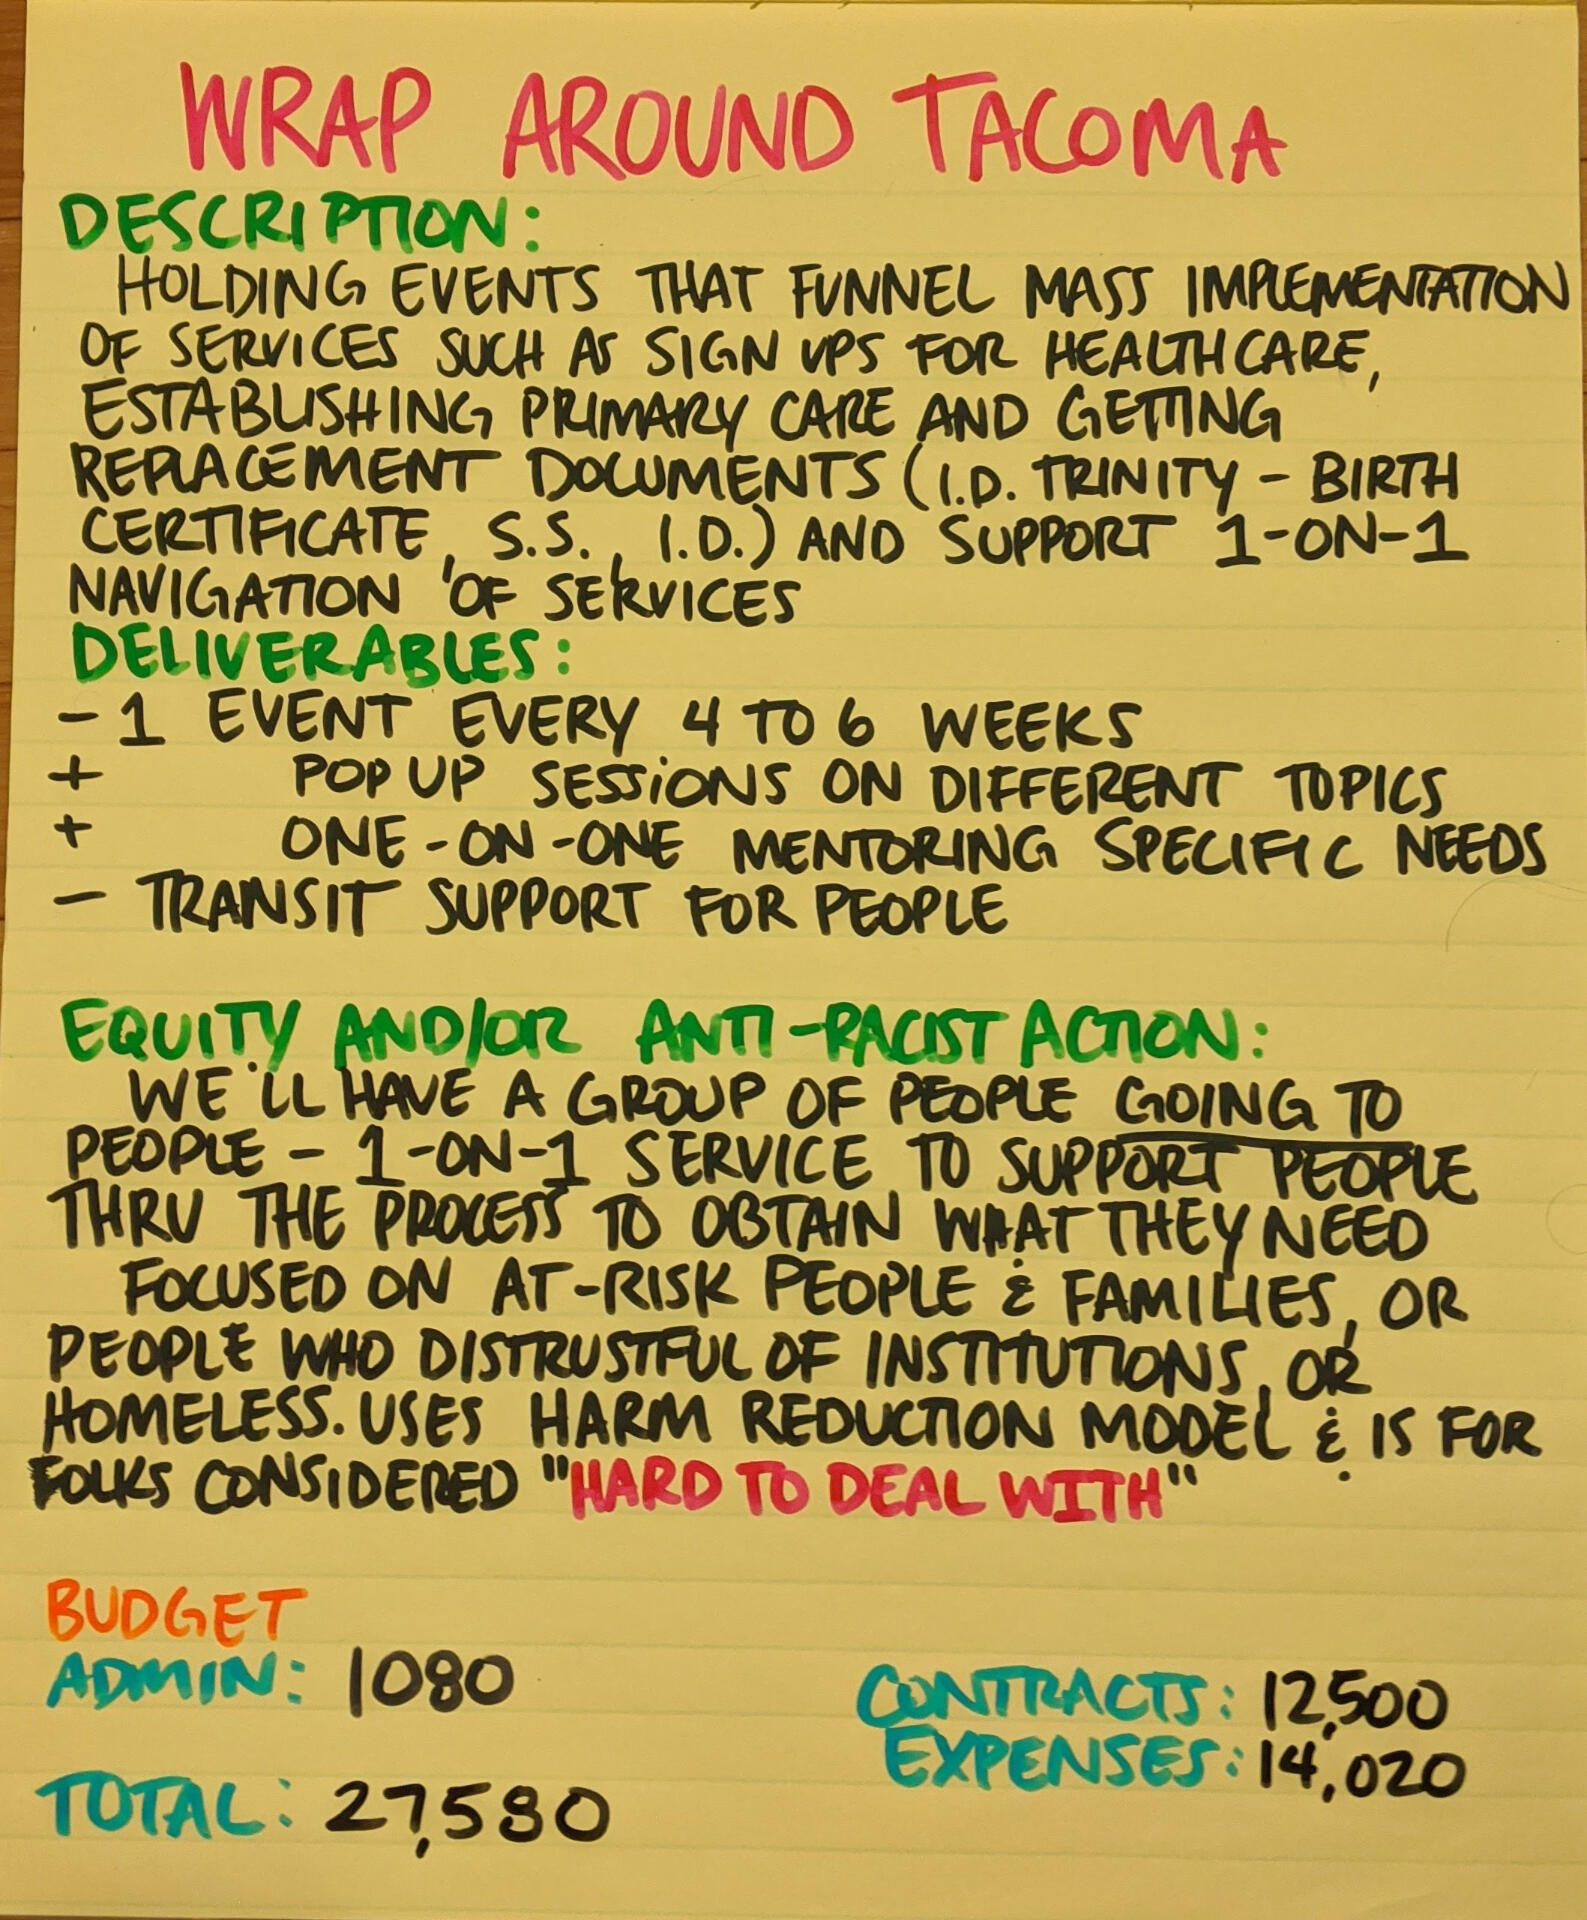 WRAP AROUND TACOMA
DESCRIPTION:
HOLDING EVENTS THAT FUNNEL MASS IMPLEMENTATION
OF SERVICES SUCH AS SIGN UPS FOR HEALTHCARE,
ESTABLISHING PRIMARY CARE AND GETTING
REPLACEMENT DOCUMENTS (I.D. TRINITY - BIRTH
CERTIFICATE, S.S., I.D.) AND SUPPORT 1-ON-1
NAVIGATION OF SERVICES
DELIVERABLES:
- 1 EVENT EVERY 4 TO 6 WEEKS
+ POP UP SESSIONS ON DIFFERENT TOPICS
+ ONE-ON-ONE MENTORING SPECIFIC NEEDS
- TRANSIT SUPPORT FOR PEOPLE
EQUITY AND/OR ANTI-RACIST ACTION:
WE'LL HAVE A GROUP OF PEOPLE GOING TO
PEOPLE - 1-ON-1 SERVICE TO SUPPORT PEOPLE
THRU THE PROCESS TO OBTAIN WHAT THEY NEED
FOCUSED ON AT-RISK PEOPLE & FAMILIES, OR
PEOPLE WHO DISTRUSTFUL OF INSTITUTIONS, OR
HOMELESS. USES HARM REDUCTION MODEL & IS FOR
FOLKS CONSIDERED "HARD TO DEAL WITH"
BUDGET
ADMIN: 1080
CONTRACTS: 12,500
EXPENSES: 14,020
TOTAL: 27,580